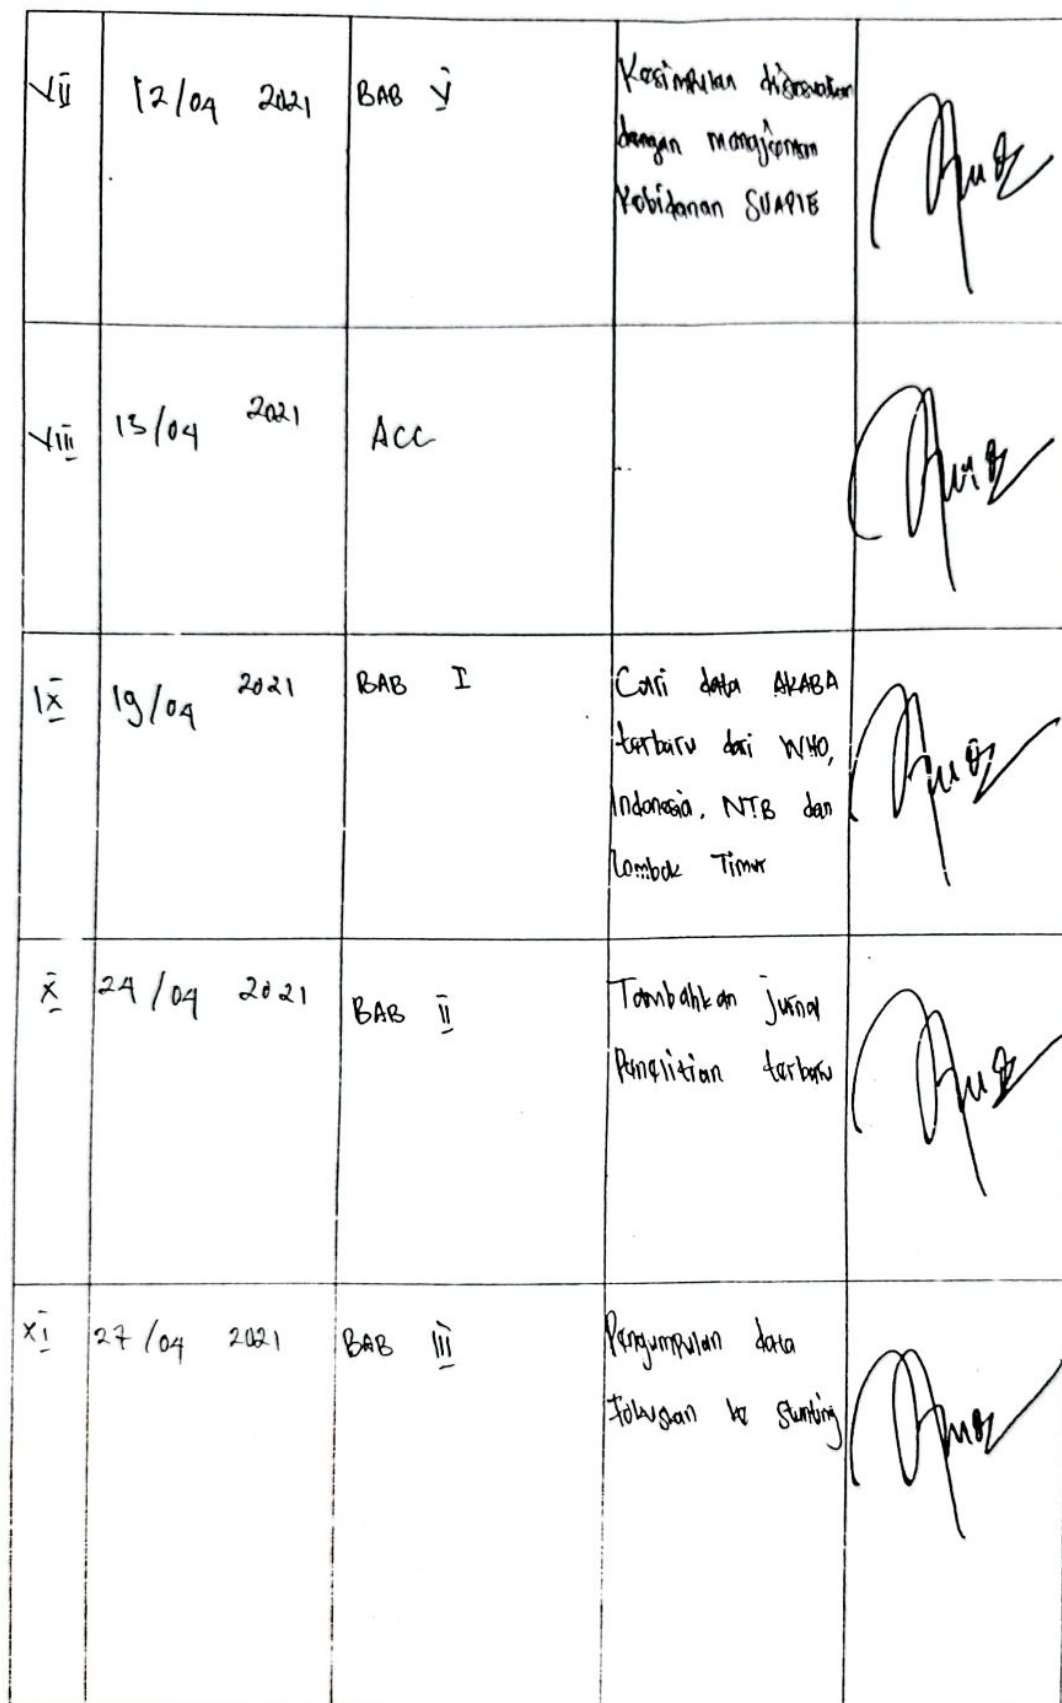 VII 12/04 2021 BAB V Kesimpulan disesuaikan
dengan manajemen
Kebidanan SOAPIE
VIII 13/04 2021 ACC
IX 19/04 2021 BAB I Cari data AKABA
terbaru dari WHO,
Indonesia, NTB dan
Lombok Timur
X 24/04 2021 BAB II Tambahkan jurnal
Penelitian terbaru
XI 27/04 2021 BAB III Pengumpulan data
Fokuskan ke stunting